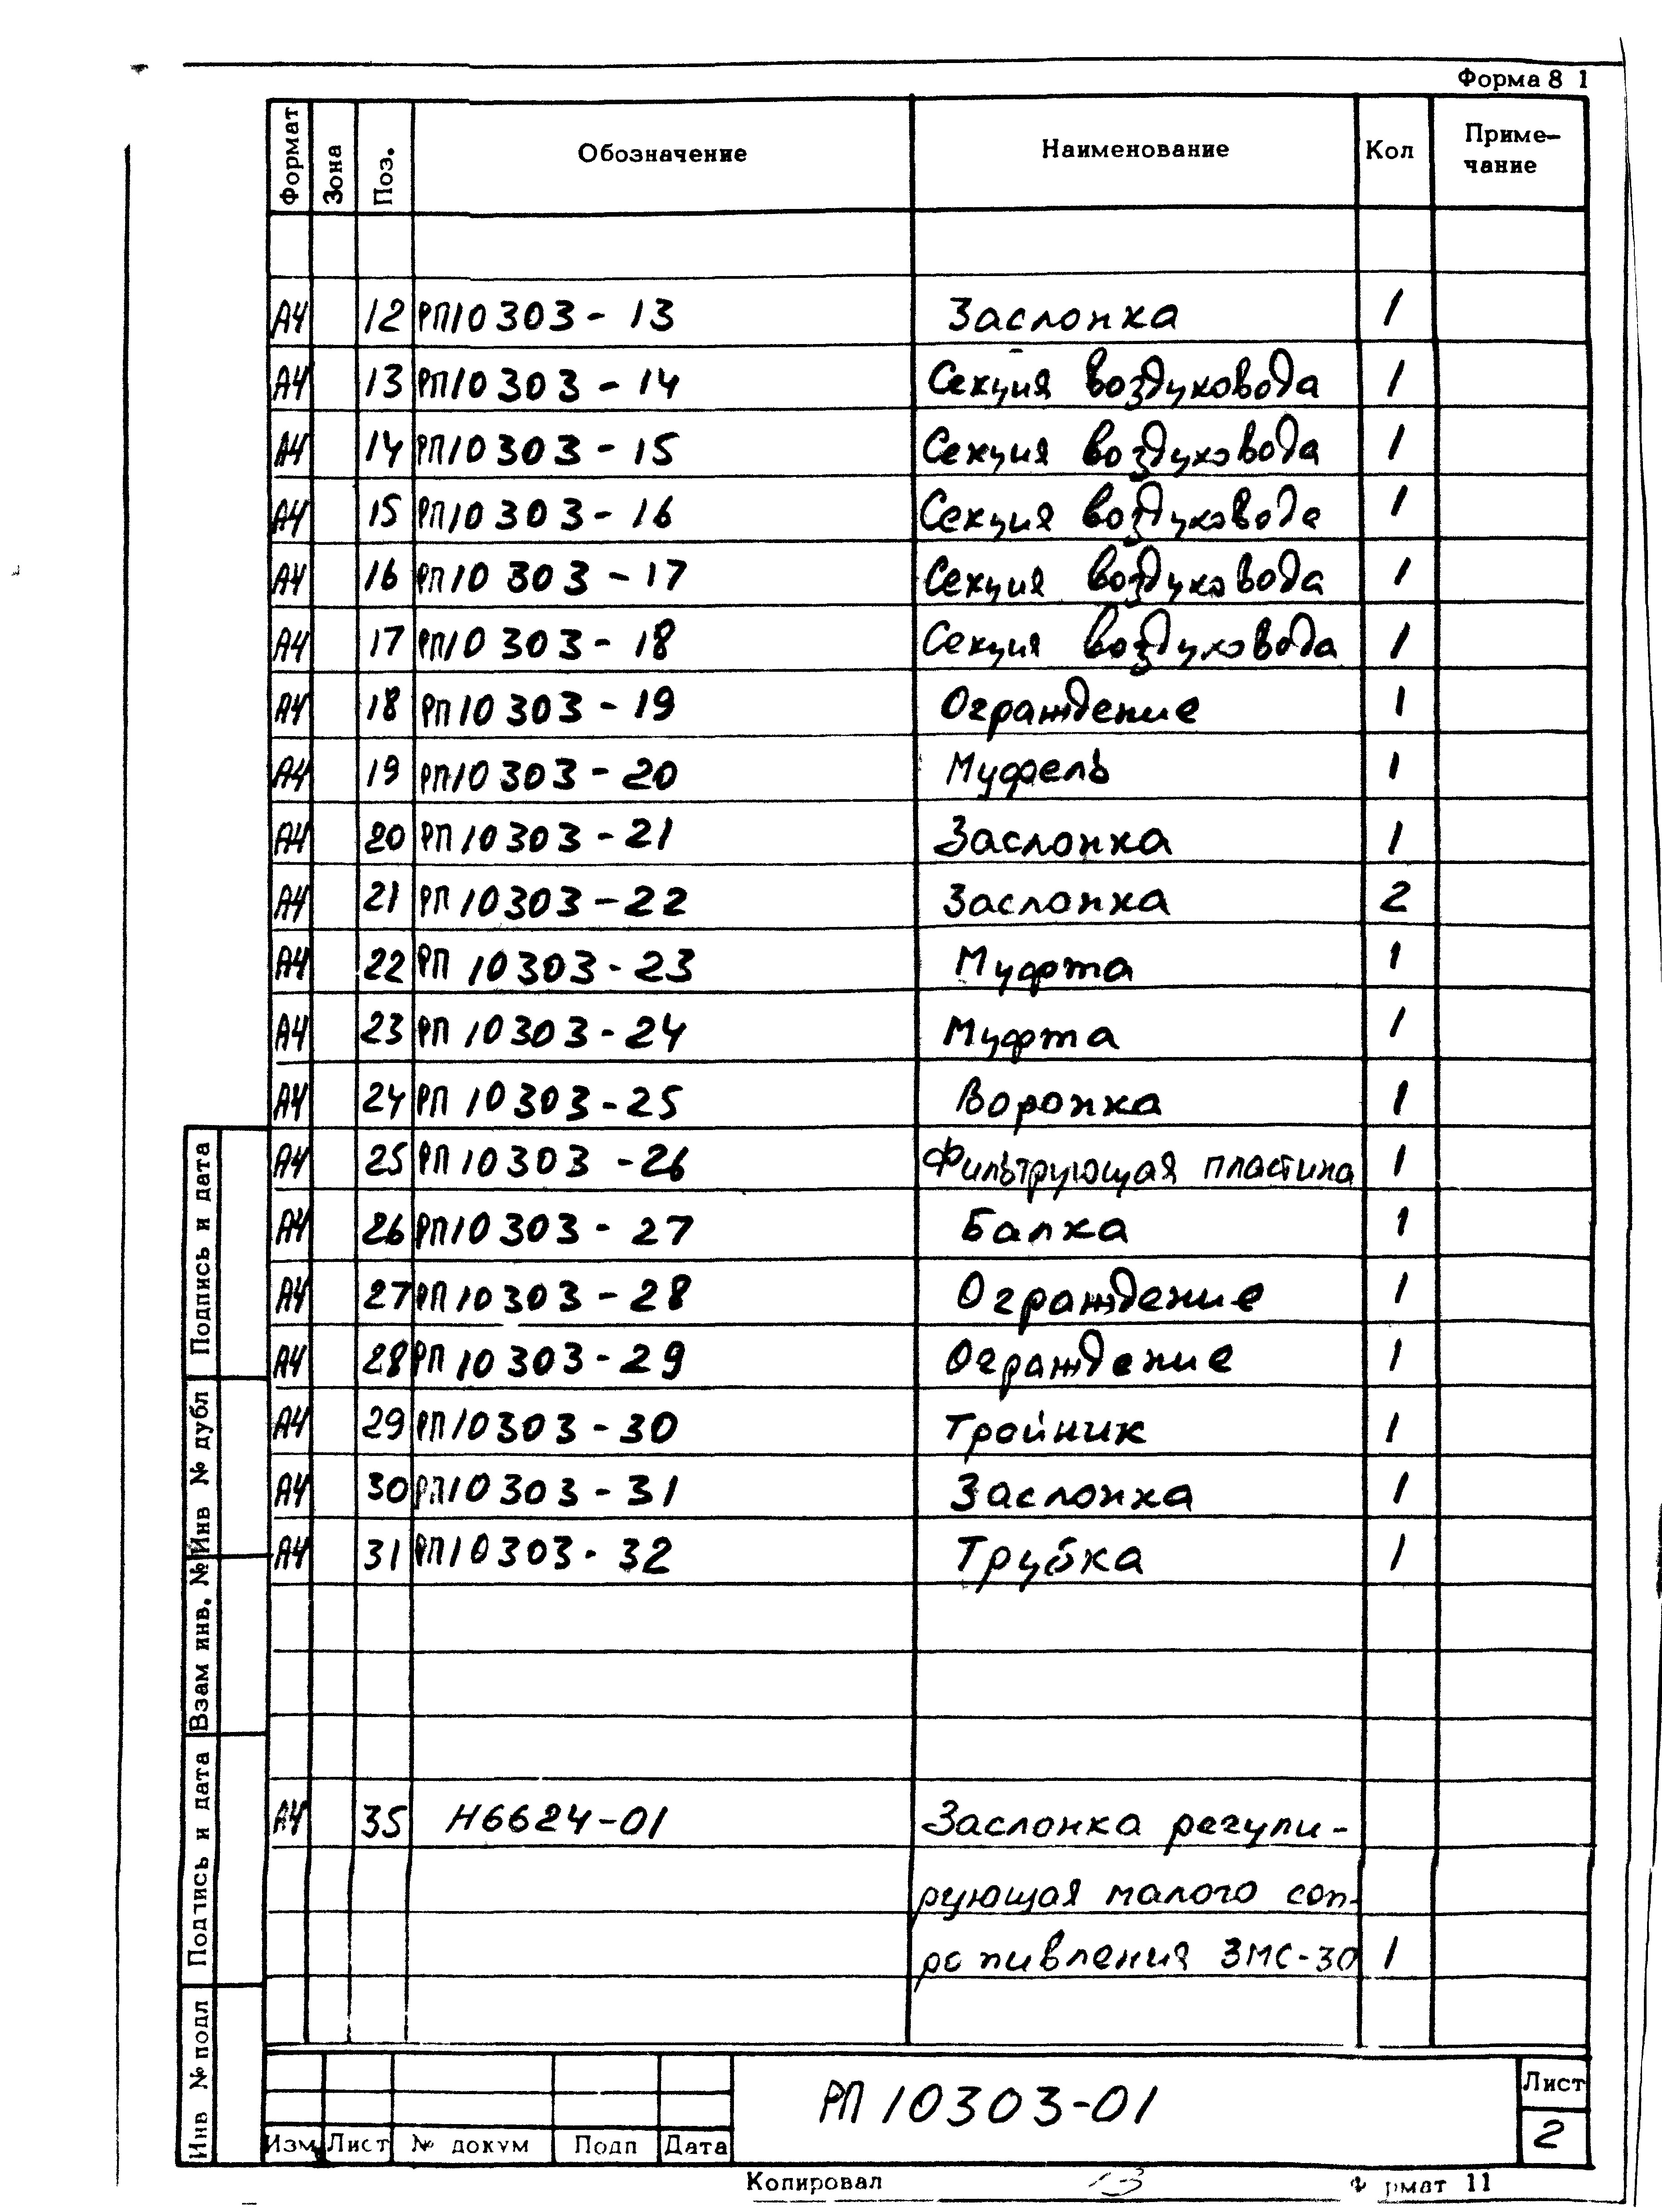 Форма 8 1
Формат Зона Поз. Обозначение Наименование Кол Приме-
чание
А4 12 РП10303-13 Заслонка 1
А4 13 РП10303-14 Секция воздуховода 1
А4 14 РП10303-15 Секция воздуховода 1
А4 15 РП10303-16 Секция воздуховода 1
А4 16 РП10303-17 Секция воздуховода 1
А4 17 РП10303-18 Секция воздуховода 1
А4 18 РП10303-19 Ограждение 1
А4 19 РП10303-20 Муфель 1
А4 20 РП10303-21 Заслонка 1
А4 21 РП10303-22 Заслонка 2
А4 22 РП10303-23 Муфта 1
А4 23 РП10303-24 Муфта 1
А4 24 РП10303-25 Воронка 1
А4 25 РП10303-26 Фильтрующая пластина 1
А4 26 РП10303-27 Балка 1
А4 27 РП10303-28 Ограждение 1
А4 28 РП10303-29 Ограждение 1
А4 29 РП10303-30 Тройник 1
А4 30 РП10303-31 Заслонка 1
А4 31 РП10303-32 Трубка 1
А4 35 Н6624-01 Заслонка регули-
рующая малого соп-
ротивления ЗМС-30 1
Подпись и дата
Инв № дубл
Взам инв. №
Подпись и дата
Инв № подл
Изм Лист № докум Подп Дата
РП10303-01
Лист
2
Копировал
рмат 11